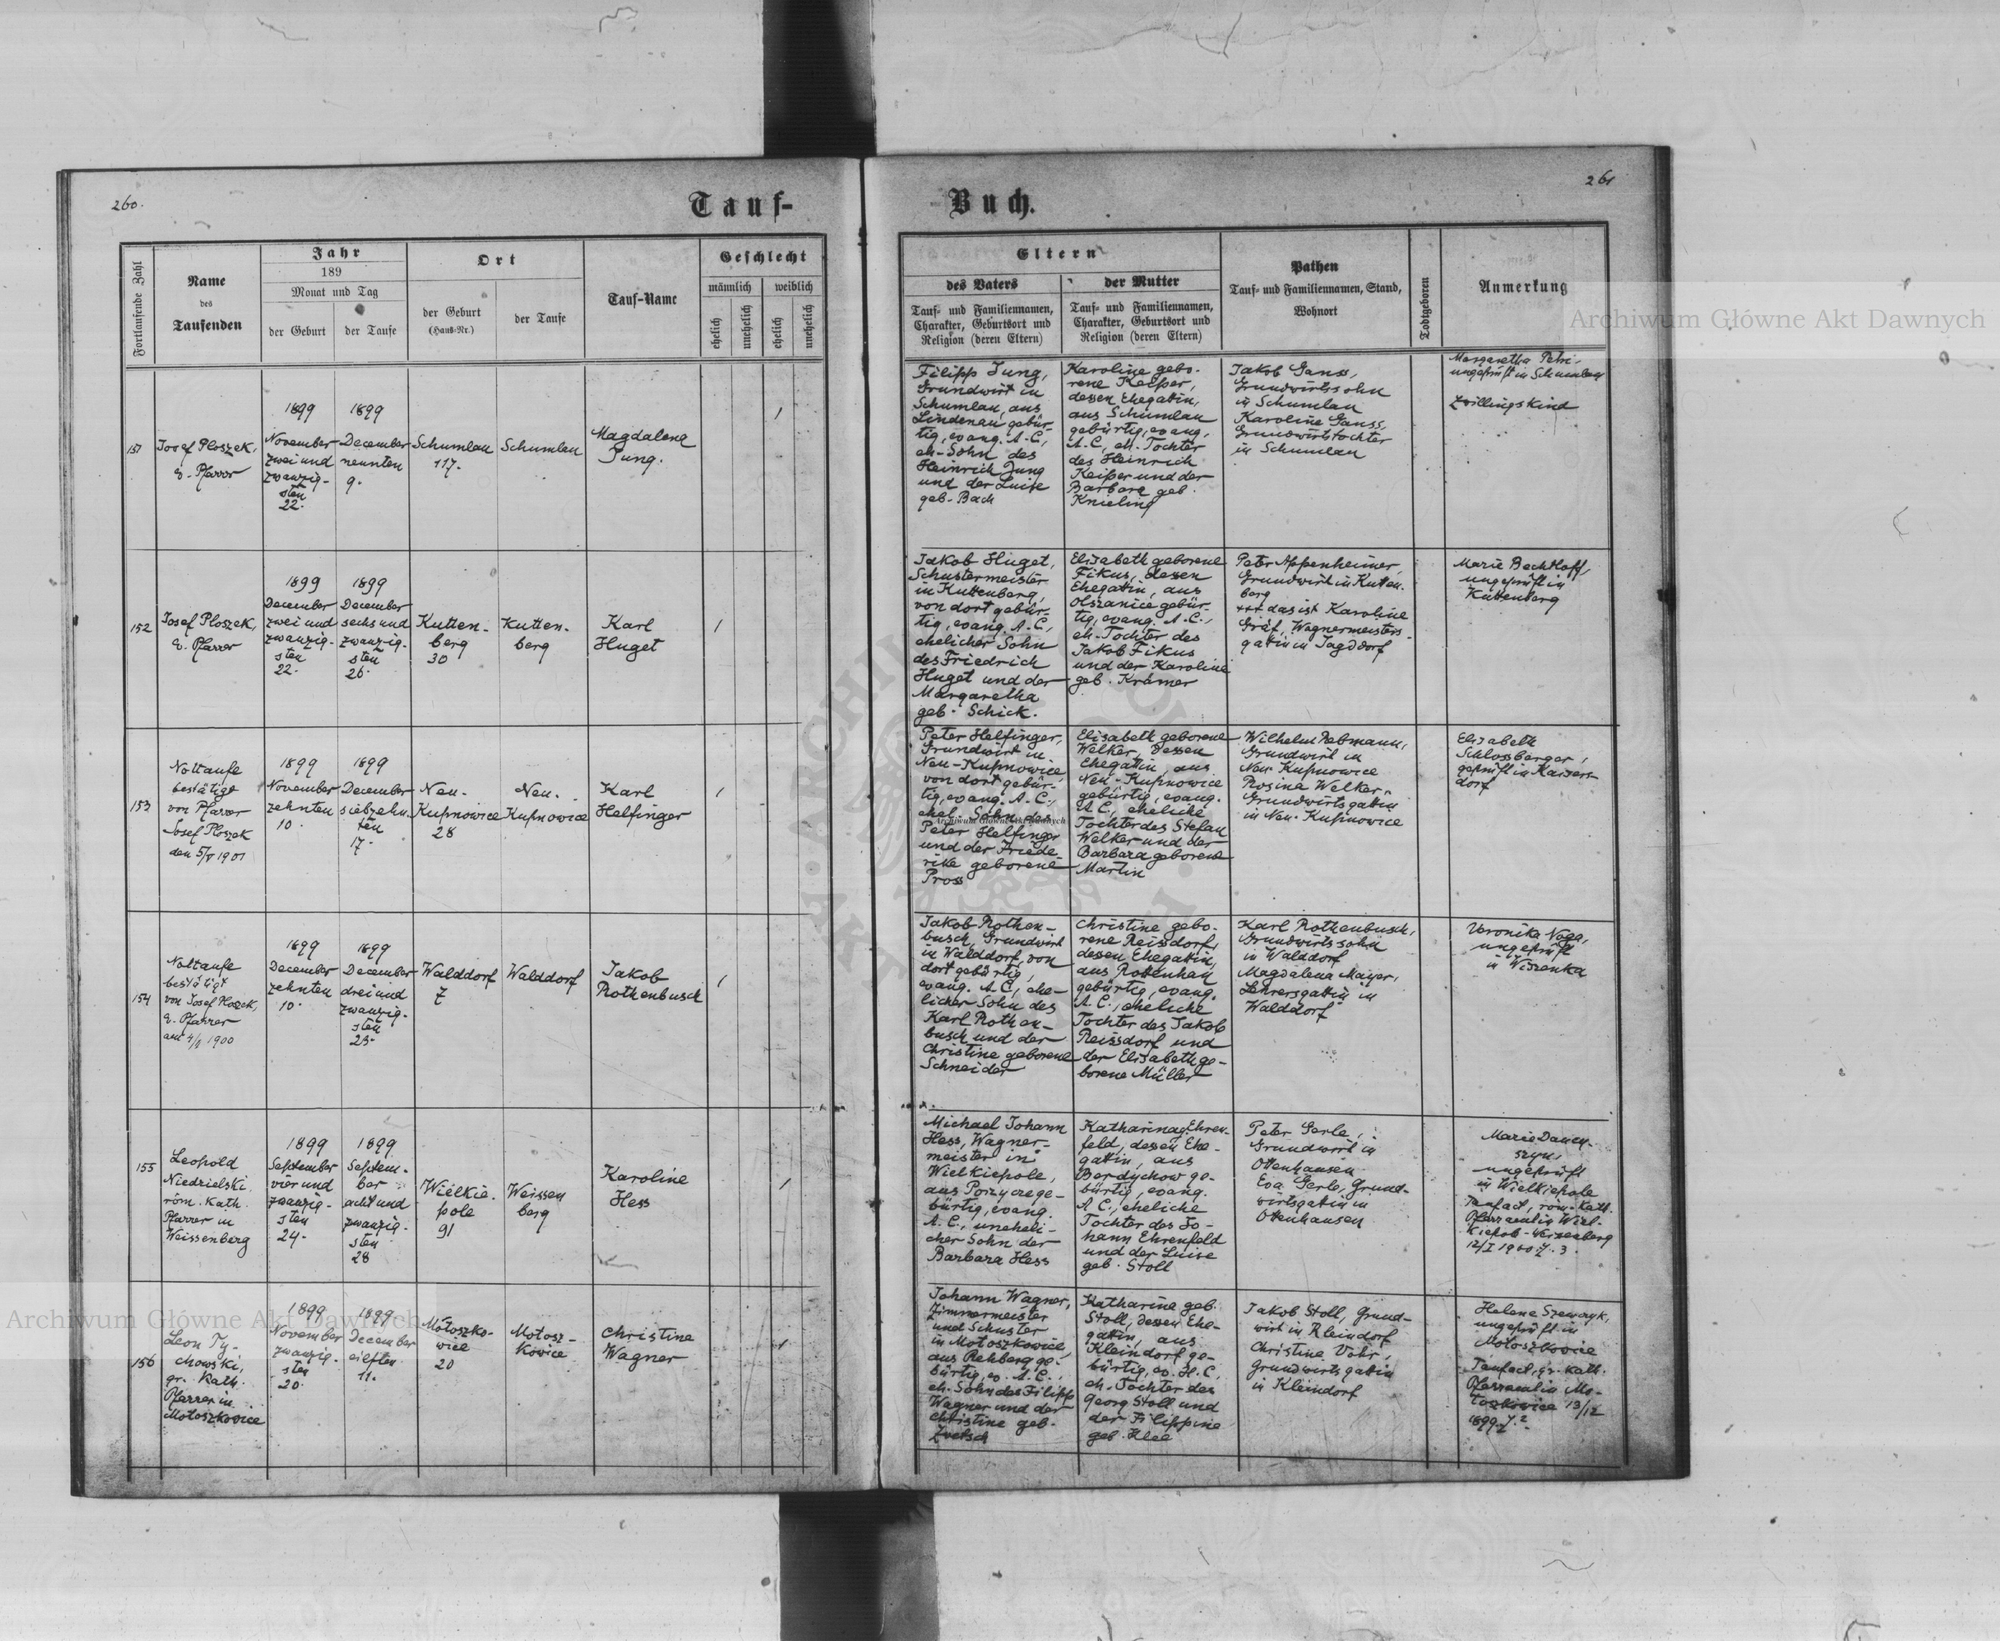 260.
Tauf-
Buch.
261
Fortlaufende Zahl
Name
des
Taufenden
Jahr
189
Monat und Tag
der Geburt
der Taufe
Ort
der Geburt
(Haus-Nr.)
der Taufe
Tauf-Name
Geschlecht
männlich
weiblich
ehelich
unehelich
ehelich
unehelich
Eltern
des Vaters
Tauf- und Familiennamen,
Charakter, Geburtsort und
Religion (deren Eltern)
der Mutter
Tauf- und Familiennamen,
Charakter, Geburtsort und
Religion (deren Eltern)
Pathen
Tauf- und Familiennamen, Stand,
Wohnort
Todtgeboren
Anmerkung
Archiwum Główne Akt Dawnych
151
Josef Ploszek,
e. Pfarrer
1899
November
zwei und
zwanzig-
sten
22.
1899
December
neunten
9.
Schumlau
117.
Schumlau
Magdalena
Jung.
1
Filipp Jung,
Grundwirt in
Schumlau, aus
Lindenau gebür-
tig, evang. A.C.,
eh. Sohn des
Heinrich Jung
und der Luise
geb. Bach
Karoline gebo-
rene Keiper,
dessen Ehegatin,
aus Schumlau
gebürtig, evang.
A.C., eh. Tochter
des Heinrich
Keiper und der
Barbara geb.
Knieling
Jakob Ganss,
Grundwirtssohn
in Schumlau
Karoline Ganss,
Grundwirtstochter
in Schumlau
Margaretha Petri,
ungeprüft in Schumlau
Zwillingskind
152
Josef Ploszek,
e. Pfarrer
1899
December
zwei und
zwanzig-
sten
22.
1899
December
sechs und
zwanzig-
sten
26.
Kutten-
berg
30
Kutten-
berg
Karl
Huget
1
Jakob Huget,
Schustermeister
in Kuttenberg,
von dort gebür-
tig, evang. A.C.,
ehelicher Sohn
des Friedrich
Huget und der
Margaretha
geb. Schick.
Elisabeth geborene
Fikus, dessen
Ehegatin, aus
Olszanice gebür-
tig, evang. A.C.,
eh. Tochter des
Jakob Fikus
und der Karoline
geb. Krämer
Peter Appenheimer,
Grundwirt in Kutten-
berg
+++ das ist Karoline
Gräf, Wagnermeisters-
gattin in Jagddorf
Marie Bechtloff,
ungeprüft in
Kuttenberg
153
Nottaufe
bestätigt
von Pfarrer
Josef Ploszek
den 5/V 1901
1899
November
zehnten
10.
1899
December
siebzehn-
ten
17.
Neu-
Kupnowice
28
Neu-
Kupnowice
Karl
Helfinger
1
Peter Helfinger,
Grundwirt in
Neu-Kupnowice
von dort gebür-
tig, evang. A.C.,
ehel. Sohn des
Peter Helfinger
und der Friede-
rike geborene
Pross
Elisabeth geborene
Welker, dessen
Ehegattin, aus
Neu-Kupnowice
gebürtig, evang.
A.C., eheliche
Tochter des Stefan
Welker und der
Barbara geborene
Martin
Wilhelm Rebmann,
Grundwirt in
Neu-Kupnowice
Rosina Welker,
Grundwirtsgattin
in Neu-Kupnowice
Elisabeth
Schlossberger,
geprüft in Kaisers-
dorf
Archiwum Główne Akt Dawnych
154
Nottaufe
bestätigt
von Josef Ploszek,
e. Pfarrer
am 4/I 1900
1899
December
zehnten
10.
1899
December
drei und
zwanzig-
sten
23.
Walddorf
7
Walddorf
Jakob
Rothenbusch
1
Jakob Rothen-
busch, Grundwirt
in Walddorf, von
dort gebürtig,
evang. A.C., ehe-
licher Sohn des
Karl Rothen-
busch und der
Christine geborene
Schneider
Christine gebo-
rene Reissdorf,
dessen Ehegattin,
aus Rottenhan
gebürtig, evang.
A.C., eheliche
Tochter des Jakob
Reissdorf und
der Elisabeth ge-
borene Müller
Karl Rothenbusch,
Grundwirtssohn
in Walddorf
Magdalena Mayer,
Lehrersgattin in
Walddorf
Veronika Noga,
ungeprüft
in Wiszenka
155
Leopold
Niedzielski
röm. kath.
Pfarrer in
Weissenberg
1899
September
vier und
zwanzig-
sten
24.
1899
Septem-
ber
acht und
zwanzig-
sten
28
Wielkie-
pole
91
Weissen
berg
Karoline
Hess
1
Michael Johann
Hess, Wagner-
meister in
Wielkiepole,
aus Porzycze ge-
bürtig, evang.
A.C., uneheli-
cher Sohn der
Barbara Hess
Katharina g. Ehren-
feld, dessen Ehe-
gattin, aus
Berdychow ge-
bürtig, evang.
A.C., eheliche
Tochter des Jo-
hann Ehrenfeld
und der Luise
geb. Stoll
Peter Gerle,
Grundwirt in
Ottenhausen
Eva Gerle, Grund-
wirtsgattin in
Ottenhausen
Marie Dancy-
szyn,
ungeprüft
in Wielkiepole
Taufact, röm-kath.
Pfarramt in Wiel-
kiepole-Weissenberg
12/I 1900 Z. 3.
156
Leon Ty-
chowski,
gr. kath.
Pfarrer in
Motoszkowice
1899
November
zwanzig-
sten
20.
1899
December
eilften
11.
Motoszko-
wice
20
Motosz-
kowice
Christine
Wagner
1
Johann Wagner,
Zimmermeister
und Schuster
in Motoszkowice,
aus Rehberg ge-
bürtig, ev. A.C.,
eh. Sohn des Filipp
Wagner und der
Christine geb.
Zretsch
Katharine geb.
Stoll, dessen Ehe-
gattin, aus
Kleindorf ge-
bürtig, ev. H.C.,
eh. Tochter des
Georg Stoll und
der Filippine
geb. Klee
Jakob Stoll, Grund-
wirt in Kleindorf
Christine Vohr,
Grundwirtsgattin
in Kleindorf
Helene Szewczyk,
ungeprüft in
Motoszkowice
Taufact, gr. kath.
Pfarramt in Mo-
toszkowice 13/12
1899 Z. 2
Archiwum Główne Akt Dawnych